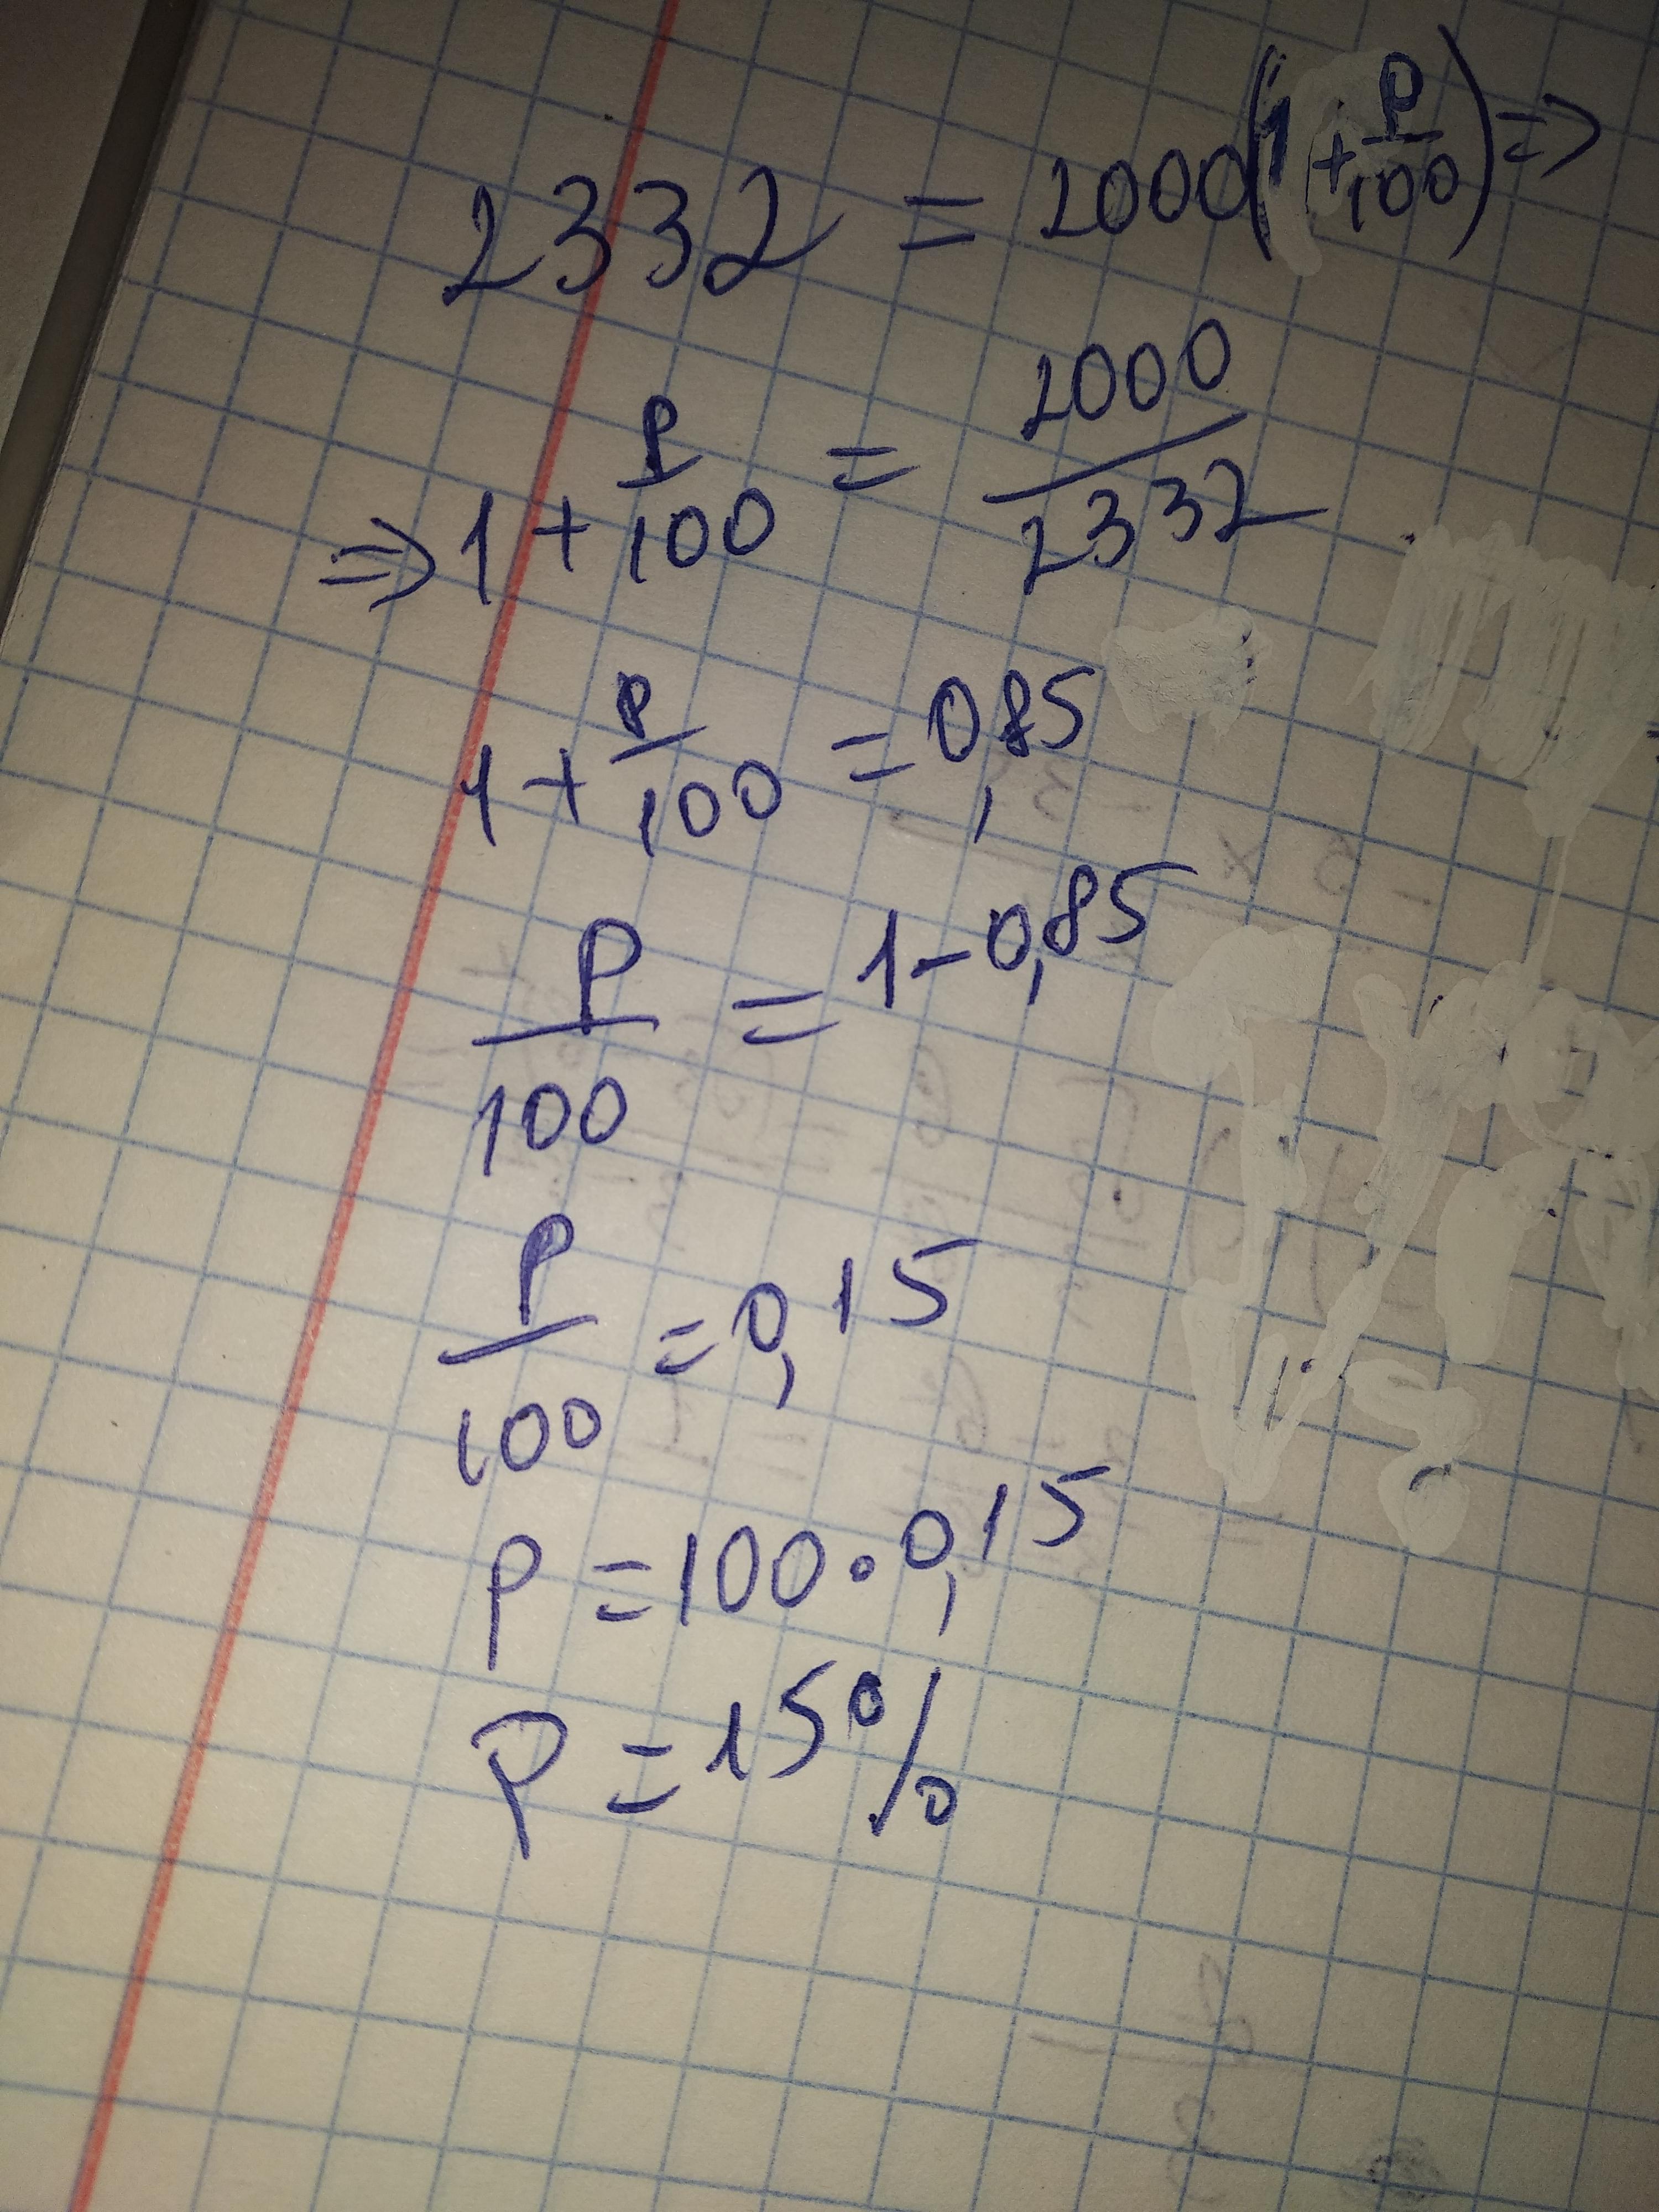 2332 = 2000(1 + P/100) =>
=> 1 + P/100 = 2000/2332
1 + P/100 = 0,85
P/100 = 1 - 0,85
P/100 = 0,15
P = 100 · 0,15
P = 15%